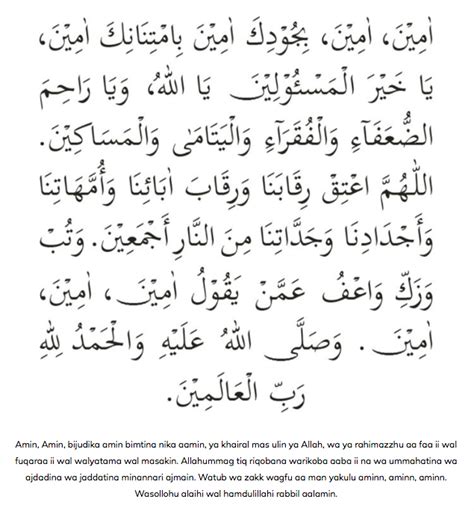 اٰمِيْنَ، اٰمِيْنَ، بِجُوْدِكَ اٰمِيْنَ بِامْتِنَانِكَ اٰمِيْنَ،
يَا خَيْرَ الْمَسْئُوْلِيْنَ يَا اللهُ، وَيَا رَاحِمَ
الضُّعَفَآءِ وَالْفُقَرَآءِ وَالْيَتَامٰى وَالْمَسَاكِيْنَ.
اَللّٰهُمَّ اعْتِقْ رِقَابَنَا وَرِقَابَ اٰبَائِنَا وَأُمَّهَاتِنَا
وَأَجْدَادِنَا وَجَدَّاتِنَا مِنَ النَّارِ أَجْمَعِيْنَ. وَتُبْ
وَزَكِّ وَاعْفُ عَمَّنْ يَقُوْلُ اٰمِيْنَ، اٰمِيْنَ،
اٰمِيْنَ. وَصَلَّى اللهُ عَلَيْهِ وَالْحَمْدُ لِلّٰهِ
رَبِّ الْعَالَمِيْنَ.
Amin, Amin, bijudika amin bimtina nika aamin, ya khairal mas ulin ya Allah, wa ya rahimazzhu aa faa ii wal
fuqaraa ii wal walyatama wal masakin. Allahummag tiq riqobana warikoba aaba ii na wa ummahatina wa
ajdadina wa jaddatina minannari ajmain. Watub wa zakk wagfu aa man yakulu aminn, aminn, aminn.
Wasollohu alaihi wal hamdulillahi rabbil aalamin.